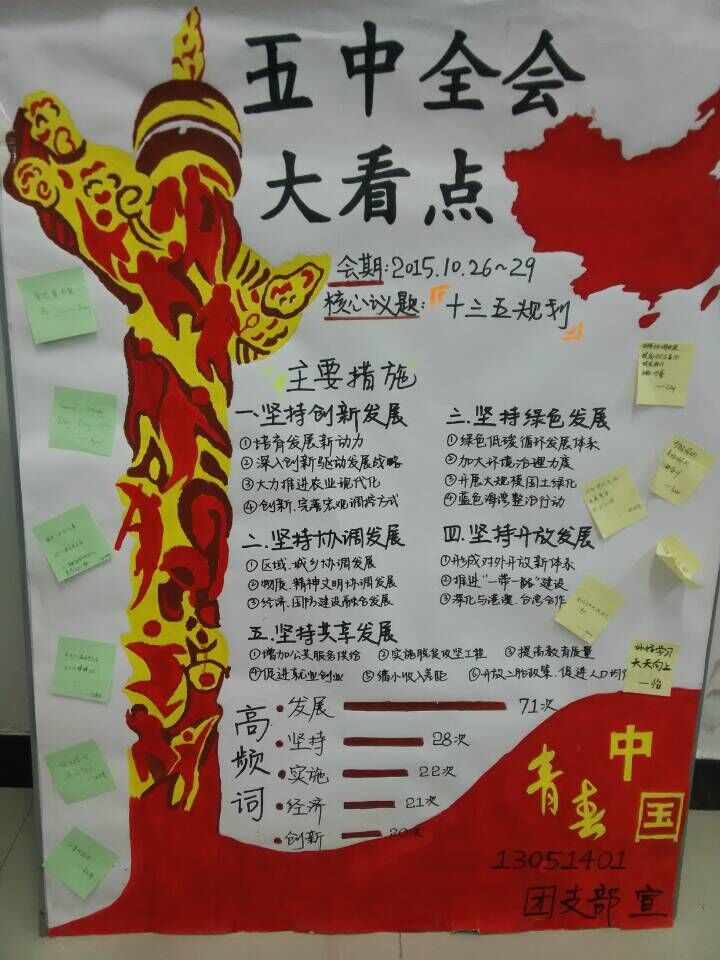 五中全会
大看点
会期:2015.10.26~29
核心议题:『十三五规划』
主要措施
一.坚持创新发展
①培育发展新动力
②深入创新驱动发展战略
③大力推进农业现代化
④创新.完善宏观调控方式
二.坚持协调发展
①区域.城乡协调发展
②物质.精神文明协调发展
③经济.国防建设融合发展
三.坚持绿色发展
①绿色低碳循环发展体系
②加大环境治理力度
③开展大规模国土绿化
④蓝色海湾整治行动
四.坚持开放发展
①形成对外开放新体系
②推进"一带一路"建设
③深化与港澳.台湾合作
五.坚持共享发展
①增加公共服务供给 ②实施脱贫攻坚工程 ③提高教育质量
④促进就业创业 ⑤缩小收入差距 ⑥开放二胎政策.促进人口均
高频词
·发展 71次
·坚持 28次
·实施 22次
·经济 21次
·创新 20次
好好学习
天天向上
—怡
青春中国
13051401
团支部 宣